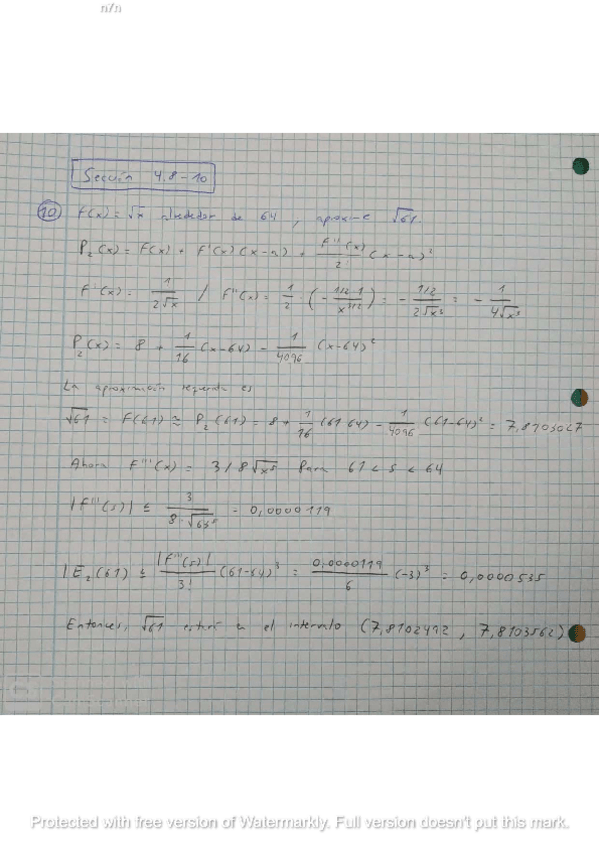 n7n
Sección 4.8-10
10 F(x) = √x alrededor de 64, aproxime √61.
P₂(x) = F(x) + F'(x)(x-a) + F''(x)/2! (x-a)²
F'(x) = 1/(2√x) / F''(x) = 1/2 · (- (1/2·1)/x^(3/2)) = - (1/2)/(2√x³) = - 1/(4√x³)
P₂(x) = 8 + 1/16 (x-64) - 1/4096 (x-64)²
La aproximación requerida es
√61 = F(61) ≅ P₂(61) = 8 + 1/16 (61-64) - 1/4096 (61-64)² = 7,8103027
Ahora F'''(x) = 3/8√x⁵ Para 61 < s < 64
|F'''(s)| ≤ 3/(8·√61⁵) = 0,0000119
|E₂(61) ≤ |F'''(s)|/3! (61-64)³ = 0,0000119/6 (-3)³ = 0,0000535
Entonces, √61 estará en el intervalo (7,8102492, 7,8103562)
Protected with free version of Watermarkly. Full version doesn't put this mark.